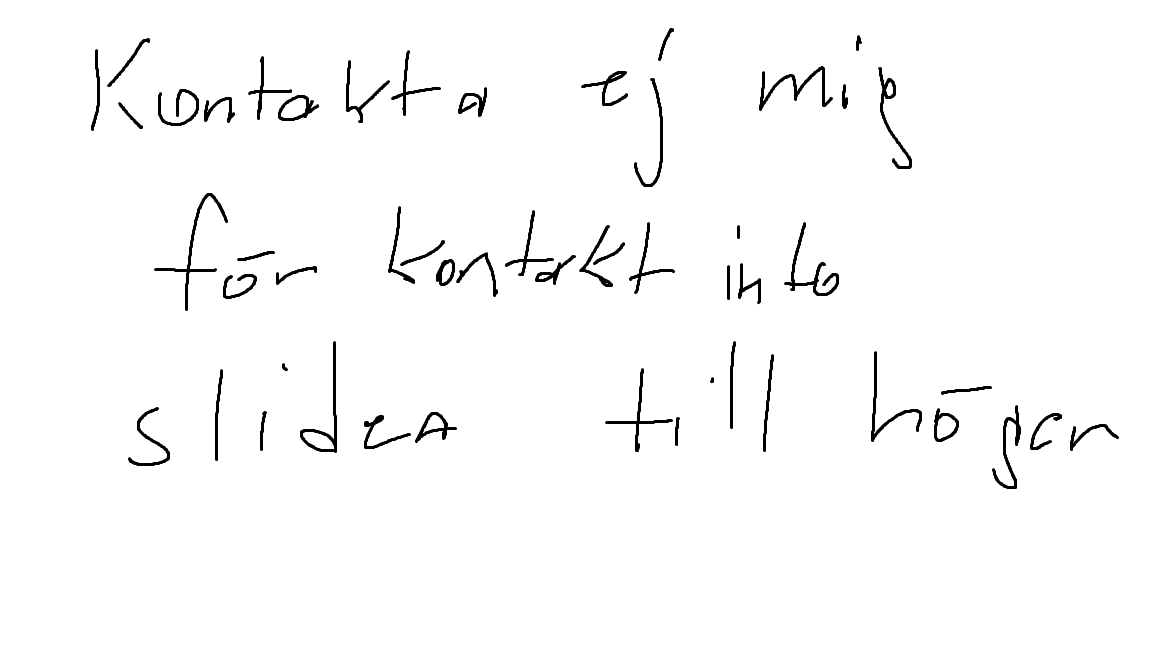 Kontakta ej mig
för kontakt info
slidea till höger